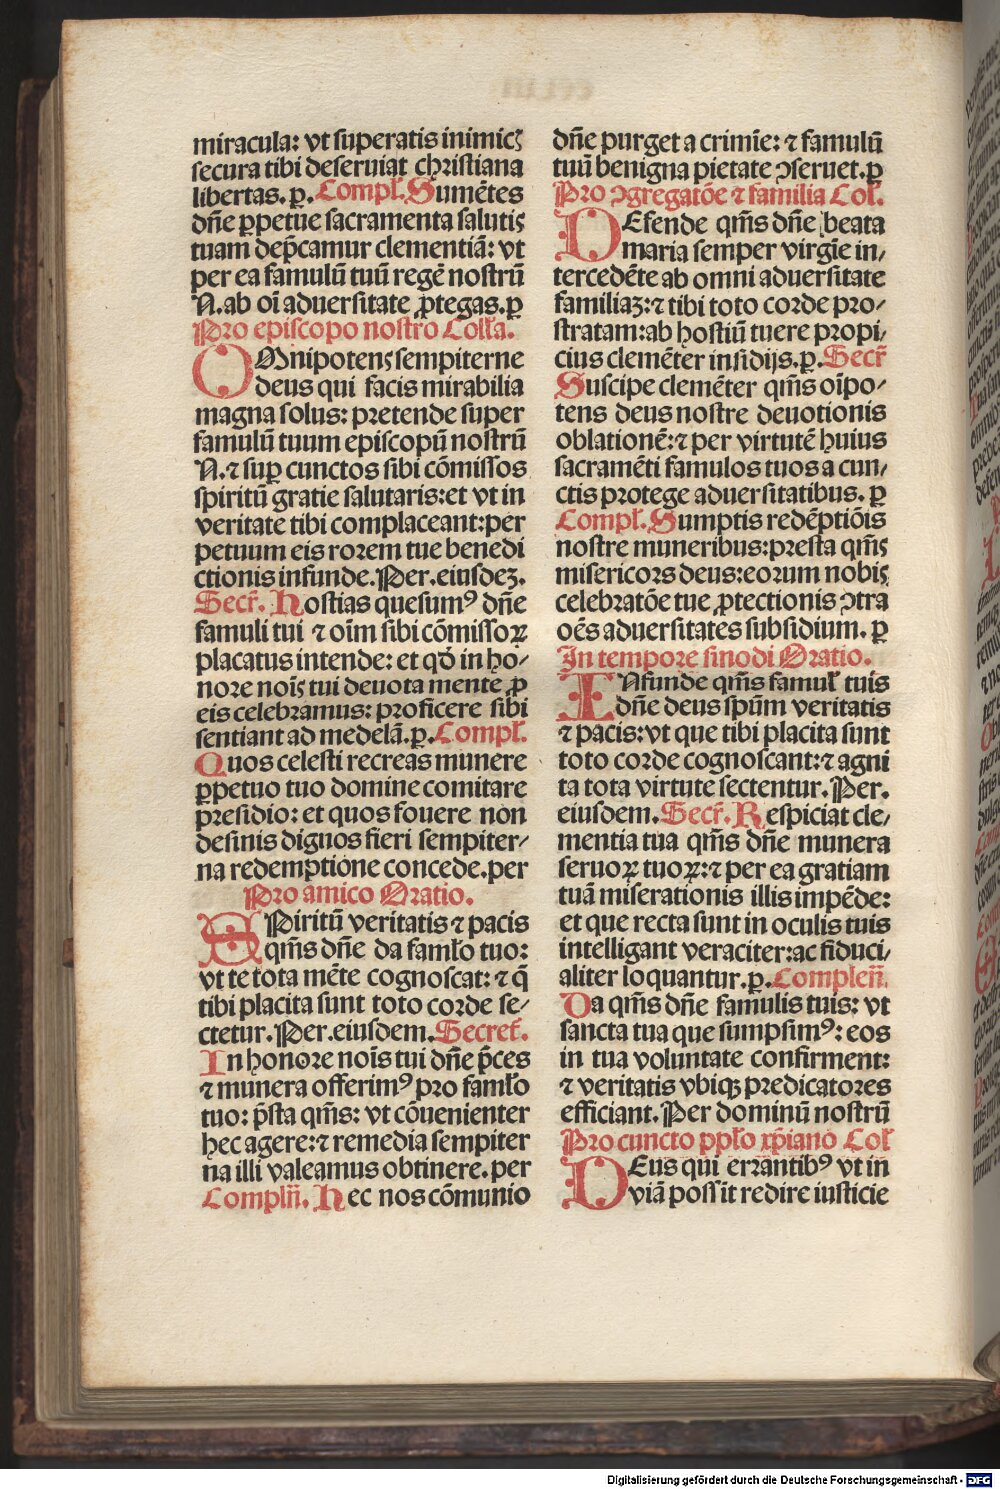 miracula: vt superatis inimicꝭ
secura tibi deseruiat christiana
libertas. ꝑ. Compł. Sumētes
dn̄e ꝑpetue sacramenta salutiꝭ
tuam dep̄camur clementiā: vt
per ea famulū tuū regē nostrū
N. ab oī aduersitate ꝓtegas. ꝑ
Pro episcopo nostro Colla.
OMnipotenꝭ sempiterne
deus qui facis mirabilia
magna solus: pretende super
famulū tuum episcopū nostrū
N. ⁊ suꝑ cunctos sibi cōmissos
spiritū gratie salutaris: et vt in
veritate tibi complaceant: per
petuum eis rorem tue benedi
ctionis infunde. Per. eiusdeꝫ.
Secr̄. Hostias quesumꝰ dn̄e
famuli tui ⁊ oīm sibi cōmissoꝝ
placatus intende: et qd̄ in ho⸗
nore noīꝭ tui deuota mente ꝓ
eis celebramus: proficere sibi
sentiant ad medelā. ꝑ. Compł.
Quos celesti recreas munere
ꝑpetuo tuo domine comitare
presidio: et quos fouere non
desinis dignos fieri sempiter⸗
na redemptione concede. per
Pro amico Oratio.
SPiritū veritatis ⁊ pacis
qm̄s dn̄e da famło tuo:
vt te tota mēte cognoscat: ⁊ q̄
tibi placita sunt toto corde se⸗
ctetur. Per. eiusdem. Secret̄.
In honore noīs tui dn̄e p̄ces
⁊ munera offerimꝰ pro famło
tuo: p̄sta qm̄s: vt cōuenienter
hec agere: ⁊ remedia sempiter
na illi valeamus obtinere. per
Compln̄. Hec nos cōmunio
dn̄e purget a crimīe: ⁊ famulū
tuū benigna pietate ꝯseruet. ꝑ
Pro ꝯgregatōe ⁊ familia Coł.
DEfende qm̄s dn̄e beata
maria semper virgīe in⸗
tercedēte ab omni aduersitate
familiaꝫ: ⁊ tibi toto corde pro⸗
stratam: ab hostiū tuere propi⸗
cius clemēter insidijs. ꝑ. Secr̄
Suscipe clemēter qm̄s oīpo⸗
tens deus nostre deuotionis
oblationē: ⁊ per virtutē huius
sacramēti famulos tuos a cun⸗
ctis protege aduersitatibus. ꝑ
Compł. Sumptis redēptiōis
nostre muneribus: presta qm̄ꝭ
misericors deus: eorum nobiꝭ
celebratōe tue ꝓtectionis ꝯtra
oēs aduersitates subsidium. ꝑ
In tempore sinodi Oratio.
INfunde qm̄s famuł tuis
dn̄e deus spūm veritatis
⁊ pacis: vt que tibi placita sunt
toto corde cognoscant: ⁊ agni
ta tota virtute sectentur. Per.
eiusdem. Secr̄. Respiciat cle⸗
mentia tua qm̄s dn̄e munera
seruoꝝ tuoꝝ: ⁊ per ea gratiam
tuā miserationis illis impēde:
et que recta sunt in oculis tuis
intelligant veraciter: ac fiduci⸗
aliter loquantur. ꝑ. Complen̄.
Da qm̄s dn̄e famulis tuis: vt
sancta tua que sumpsimꝰ: eos
in tua voluntate confirment:
⁊ veritatis vbiqꝫ predicatores
efficiant. Per dominū nostrū
Pro cuncto ppło xp̄iano Coł
DEus qui errantibꝰ vt in
viā possit redire iusticie
Digitalisierung gefördert durch die Deutsche Forschungsgemeinschaft - DFG